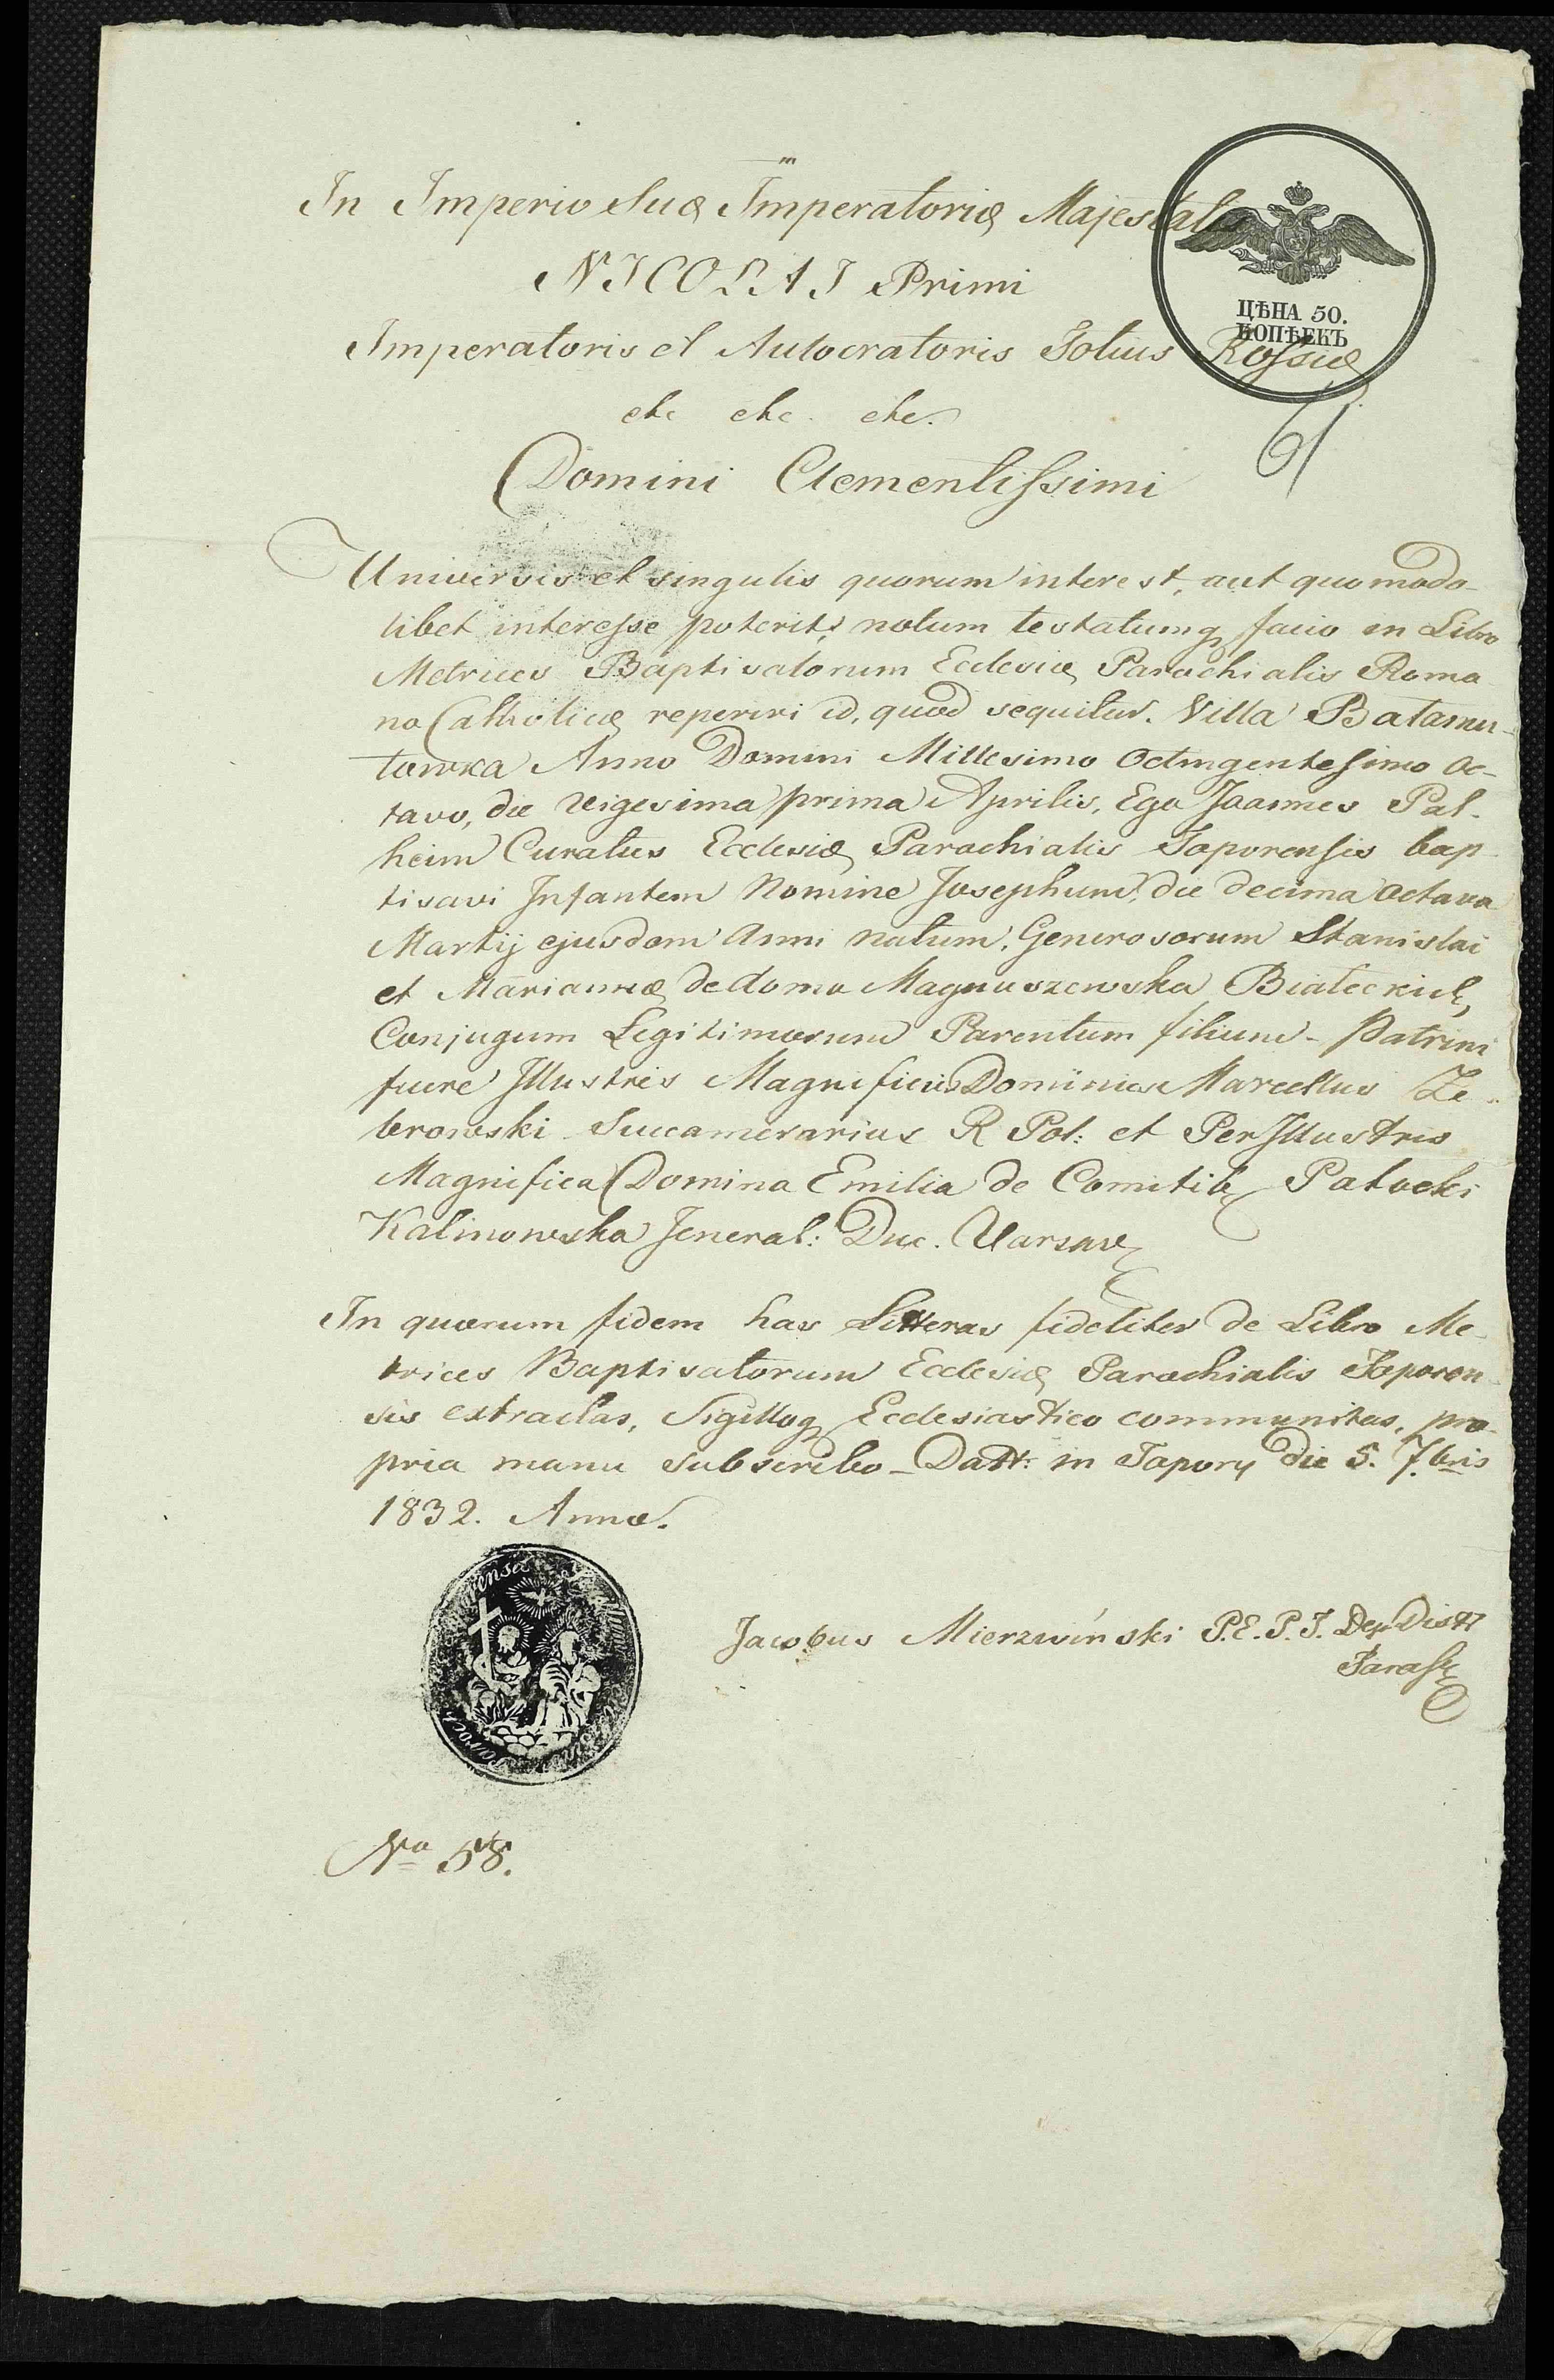 In Imperio Suæ Imperatoriæ Majestatis
NICOLAI Primi
Imperatoris et Autocratoris Totius Rossiæ
etc etc. etc.
Domini Clementissimi
ЦѢНА 50.
КОПѢЕКЪ
61
Universis et singulis quorum interest, aut quomodo-
libet interesse poterit, notum testatumq facio in Libro
Metrices Baptisatorum Ecclesiæ Parochialis Roma
no Catholicæ reperiri id, quod sequitur. Villa Batamu-
towka Anno Domini Millesimo Octingentesimo Oc-
tavo, die vigesima prima Aprilis, Ego Joannes Pal-
heim Curatus Ecclesiæ Parochialis Taporensis bap-
tisavi Infantem Nomine Josephum, die decima octava
Martij ejusdem Anni natum, Generosorum Stanislai
et Mariannæ de domo Magnuszewska Białeckich,
Conjugum Legitimorum Parentum filium - Patrini
fuere Illustris Magnificus Dominus Marcellus Ze-
browski Succamerarius R Pol: et PerIllustris
Magnifica Domina Emilia de Comitib Potocki
Kalinowska Jeneral: Duc. Varsav
In quorum fidem has Litteras fideliter de Libro Me-
trices Baptisatorum Ecclesiæ Parochialis Taporen-
sis extractas, Sigilloq Ecclesiastico communitas, pro-
pria manu subscribo - Datt: in Tapory die 5. 7bris
1832. Anno.
Jacobus Mierzwiński P.E.P.T. Dep Distt
No 58.